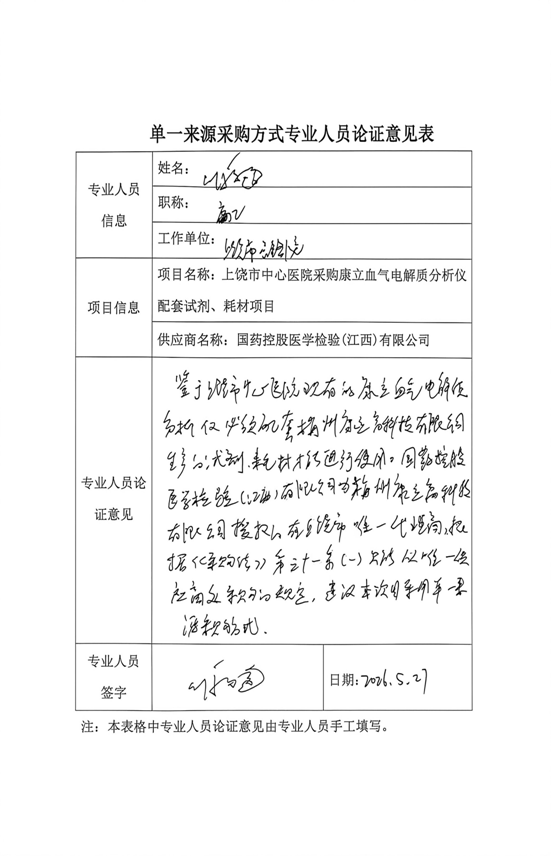 单一来源采购方式专业人员论证意见表
专业人员
信息
姓名：
职称：
工作单位：
项目信息
项目名称：上饶市中心医院采购康立血气电解质分析仪
配套试剂、耗材项目
供应商名称：国药控股医学检验(江西)有限公司
专业人员论
证意见
鉴于上饶市中心医院现有的康立血气电解质
分析仪必须配套梅州康立高科技有限公司
生产的试剂、耗材才能进行使用。国药控股
医学检验(江西)有限公司为梅州康立高科技
有限公司授权的在上饶市唯一代理商，根
据《采购法》第三十一条(一)只能从唯一供
应商处采购的规定，建议本项目采用单一来
源采购
专业人员
签字
日期：2026.5.27
注：本表格中专业人员论证意见由专业人员手工填写。